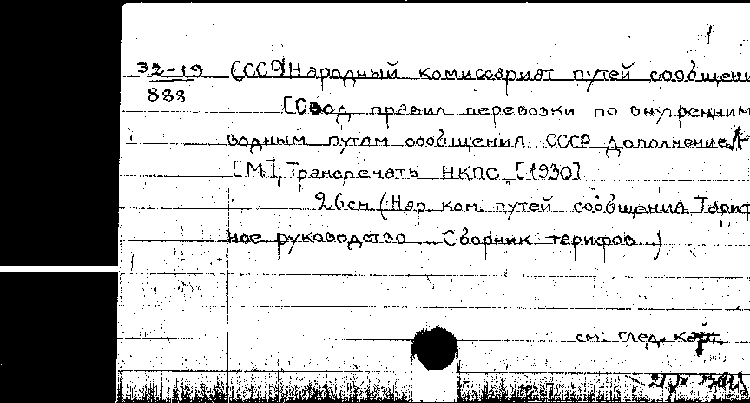 1
32-19 СССР Народный комиссариат путей сообщени
888
[Свод правил перевозки по внутренним
водным путям сообщения СССР Дополнение
[М], Транспечать НКПС, [1930]
26см (Нар. ком. путей сообщения. Тариф
ное руководство... Сборник тарифов...)
см. след. карт.